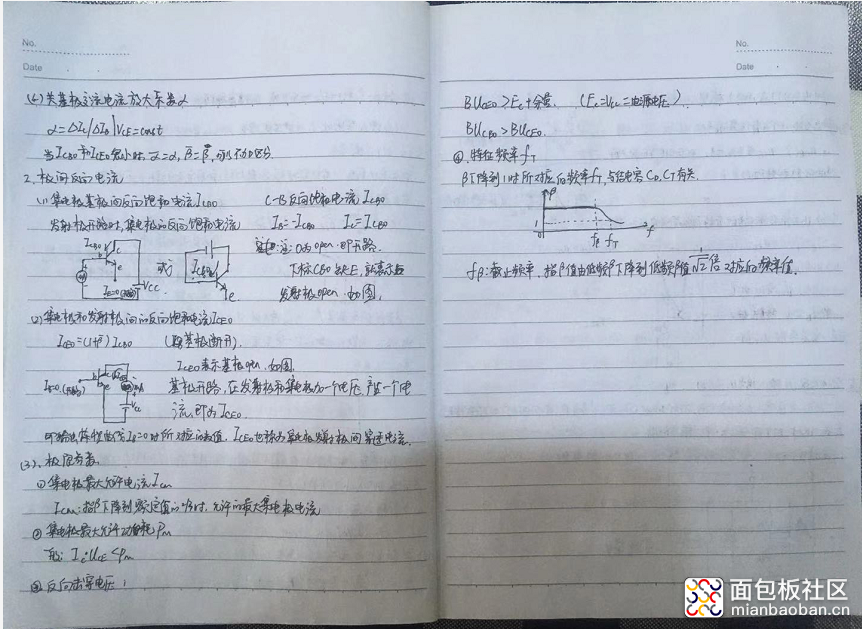 No.
Date
(4) 共基极交流电流放大系数α
α=ΔIc/ΔIB|VCE=const
当ICBO和ICEO很小时, α=α, β=β, 可以不加区分.
2. 极间反向电流
(1) 集电极基极间反向饱和电流ICBO
C-B反向饱和电流 ICBO
发射极开路时, 集电极的反向饱和电流
IB=-ICBO Ic=ICBO
ICBO
c
b
e
VCC
或
ICBO
e
注: O为open. 即开路.
下标CBO 缺E, 就表示
发射极open. 如图.
(2) 集电极和发射极间的反向饱和电流ICEO
ICEO=(1+β)ICBO (即基极断开).
ICEO表示基极open. 如图.
b
c
e
VCC
基极开路, 在发射极和集电极加一个电压, 产生一个电
流, 即为ICEO.
ICEO也称为集电极发射极间穿透电流.
(3). 极限参数
① 集电极最大允许电流ICM
ICM: 指β下降到额定值的 时, 允许的最大集电极电流
② 集电极最大允许功耗PM
Ic·UCE<PM
③ 反向击穿电压
No.
Date
BUCEO>Ec+余量. (Ec=VCC=电源电压).
BUCBO>BUCEO.
④. 特征频率fT
β下降到1时所对应的频率fT, 与结电容CD, CT有关.
β
1
0
fβ
fT
f
fβ: 截止频率. 指β值由低频β下降到低频β值1/√2倍对应的频率值.
面包板社区
mianbaoban.cn